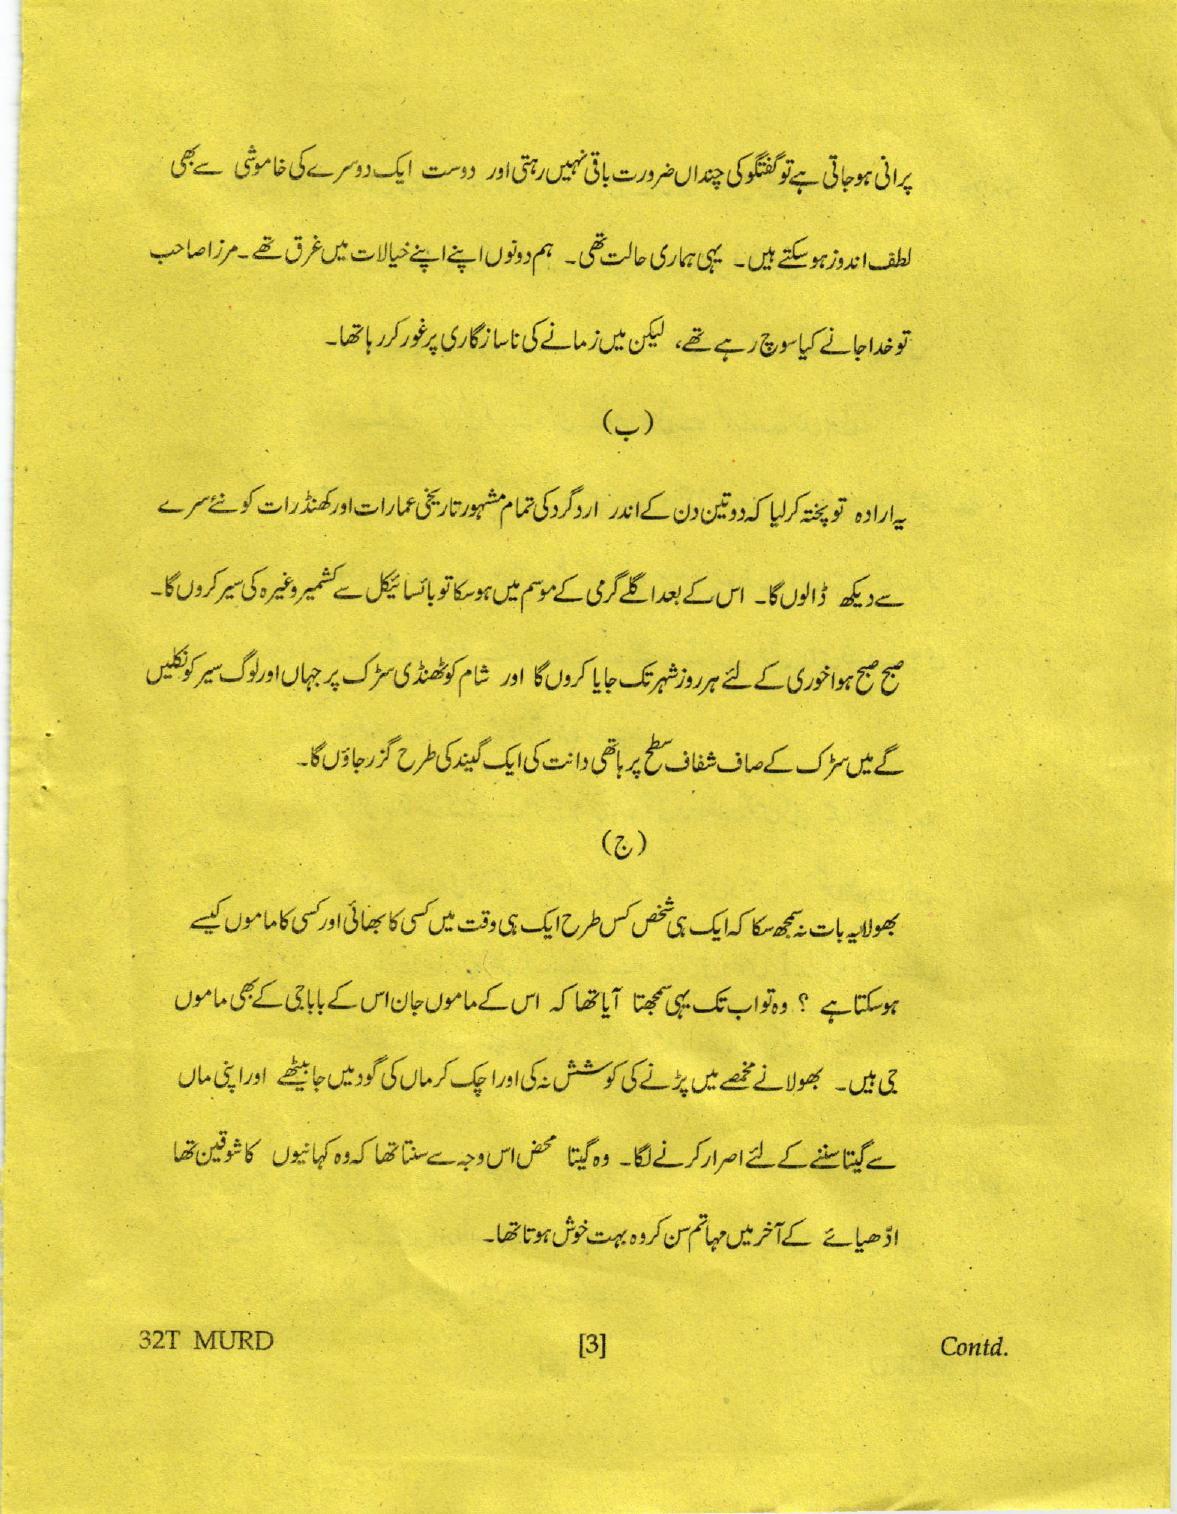 پرانی ہوجاتی ہے تو گفتگو کی چنداں ضرورت باقی نہیں رہتی اور دوست ایک دوسرے کی خاموشی سے بھی
لطف اندوز ہوسکتے ہیں۔ یہی ہماری حالت تھی۔ ہم دونوں اپنے اپنے خیالات میں غرق تھے۔ مرزا صاحب
تو خدا جانے کیا سوچ رہے تھے، لیکن میں زمانے کی ناسازگاری پر غور کررہا تھا۔
(ب)
یہ ارادہ تو پختہ کرلیا کہ دو تین دن کے اندر اردگرد کی تمام مشہور تاریخی عمارات اور کھنڈرات کو نئے سرے
سے دیکھ ڈالوں گا۔ اس کے بعد اگلے گرمی کے موسم میں ہوسکا تو بائسائیکل سے کشمیر وغیرہ کی سیر کروں گا۔
صبح صبح ہواخوری کے لئے ہر روز شہر تک جایا کروں گا اور شام کو ٹھنڈی سڑک پر جہاں اور لوگ سیر کو نکلیں
گے میں سڑک کے صاف شفاف سطح پر ہاتھی دانت کی ایک گیند کی طرح گزر جاؤں گا۔
(ج)
بھولا یہ بات نہ سمجھ سکا کہ ایک ہی شخص کس طرح ایک ہی وقت میں کسی کا بھائی اور کسی کا ماموں کیسے
ہوسکتا ہے ؟ وہ تو اب تک یہی سمجھتا آیا تھا کہ اس کے ماموں جان اس کے باباجی کے بھی ماموں
جی ہیں۔ بھولا نے مخمصے میں پڑنے کی کوشش نہ کی اور اچک کر ماں کی گود میں جا بیٹھے اور اپنی ماں
سے گیتا سننے کے لئے اصرار کرنے لگا۔ وہ گیتا محض اس وجہ سے سنتا تھا کہ وہ کہانیوں کا شوقین تھا
ادّھیائے کے آخر میں مہاتم سن کر وہ بہت خوش ہوتا تھا۔
32T MURD [3] Contd.